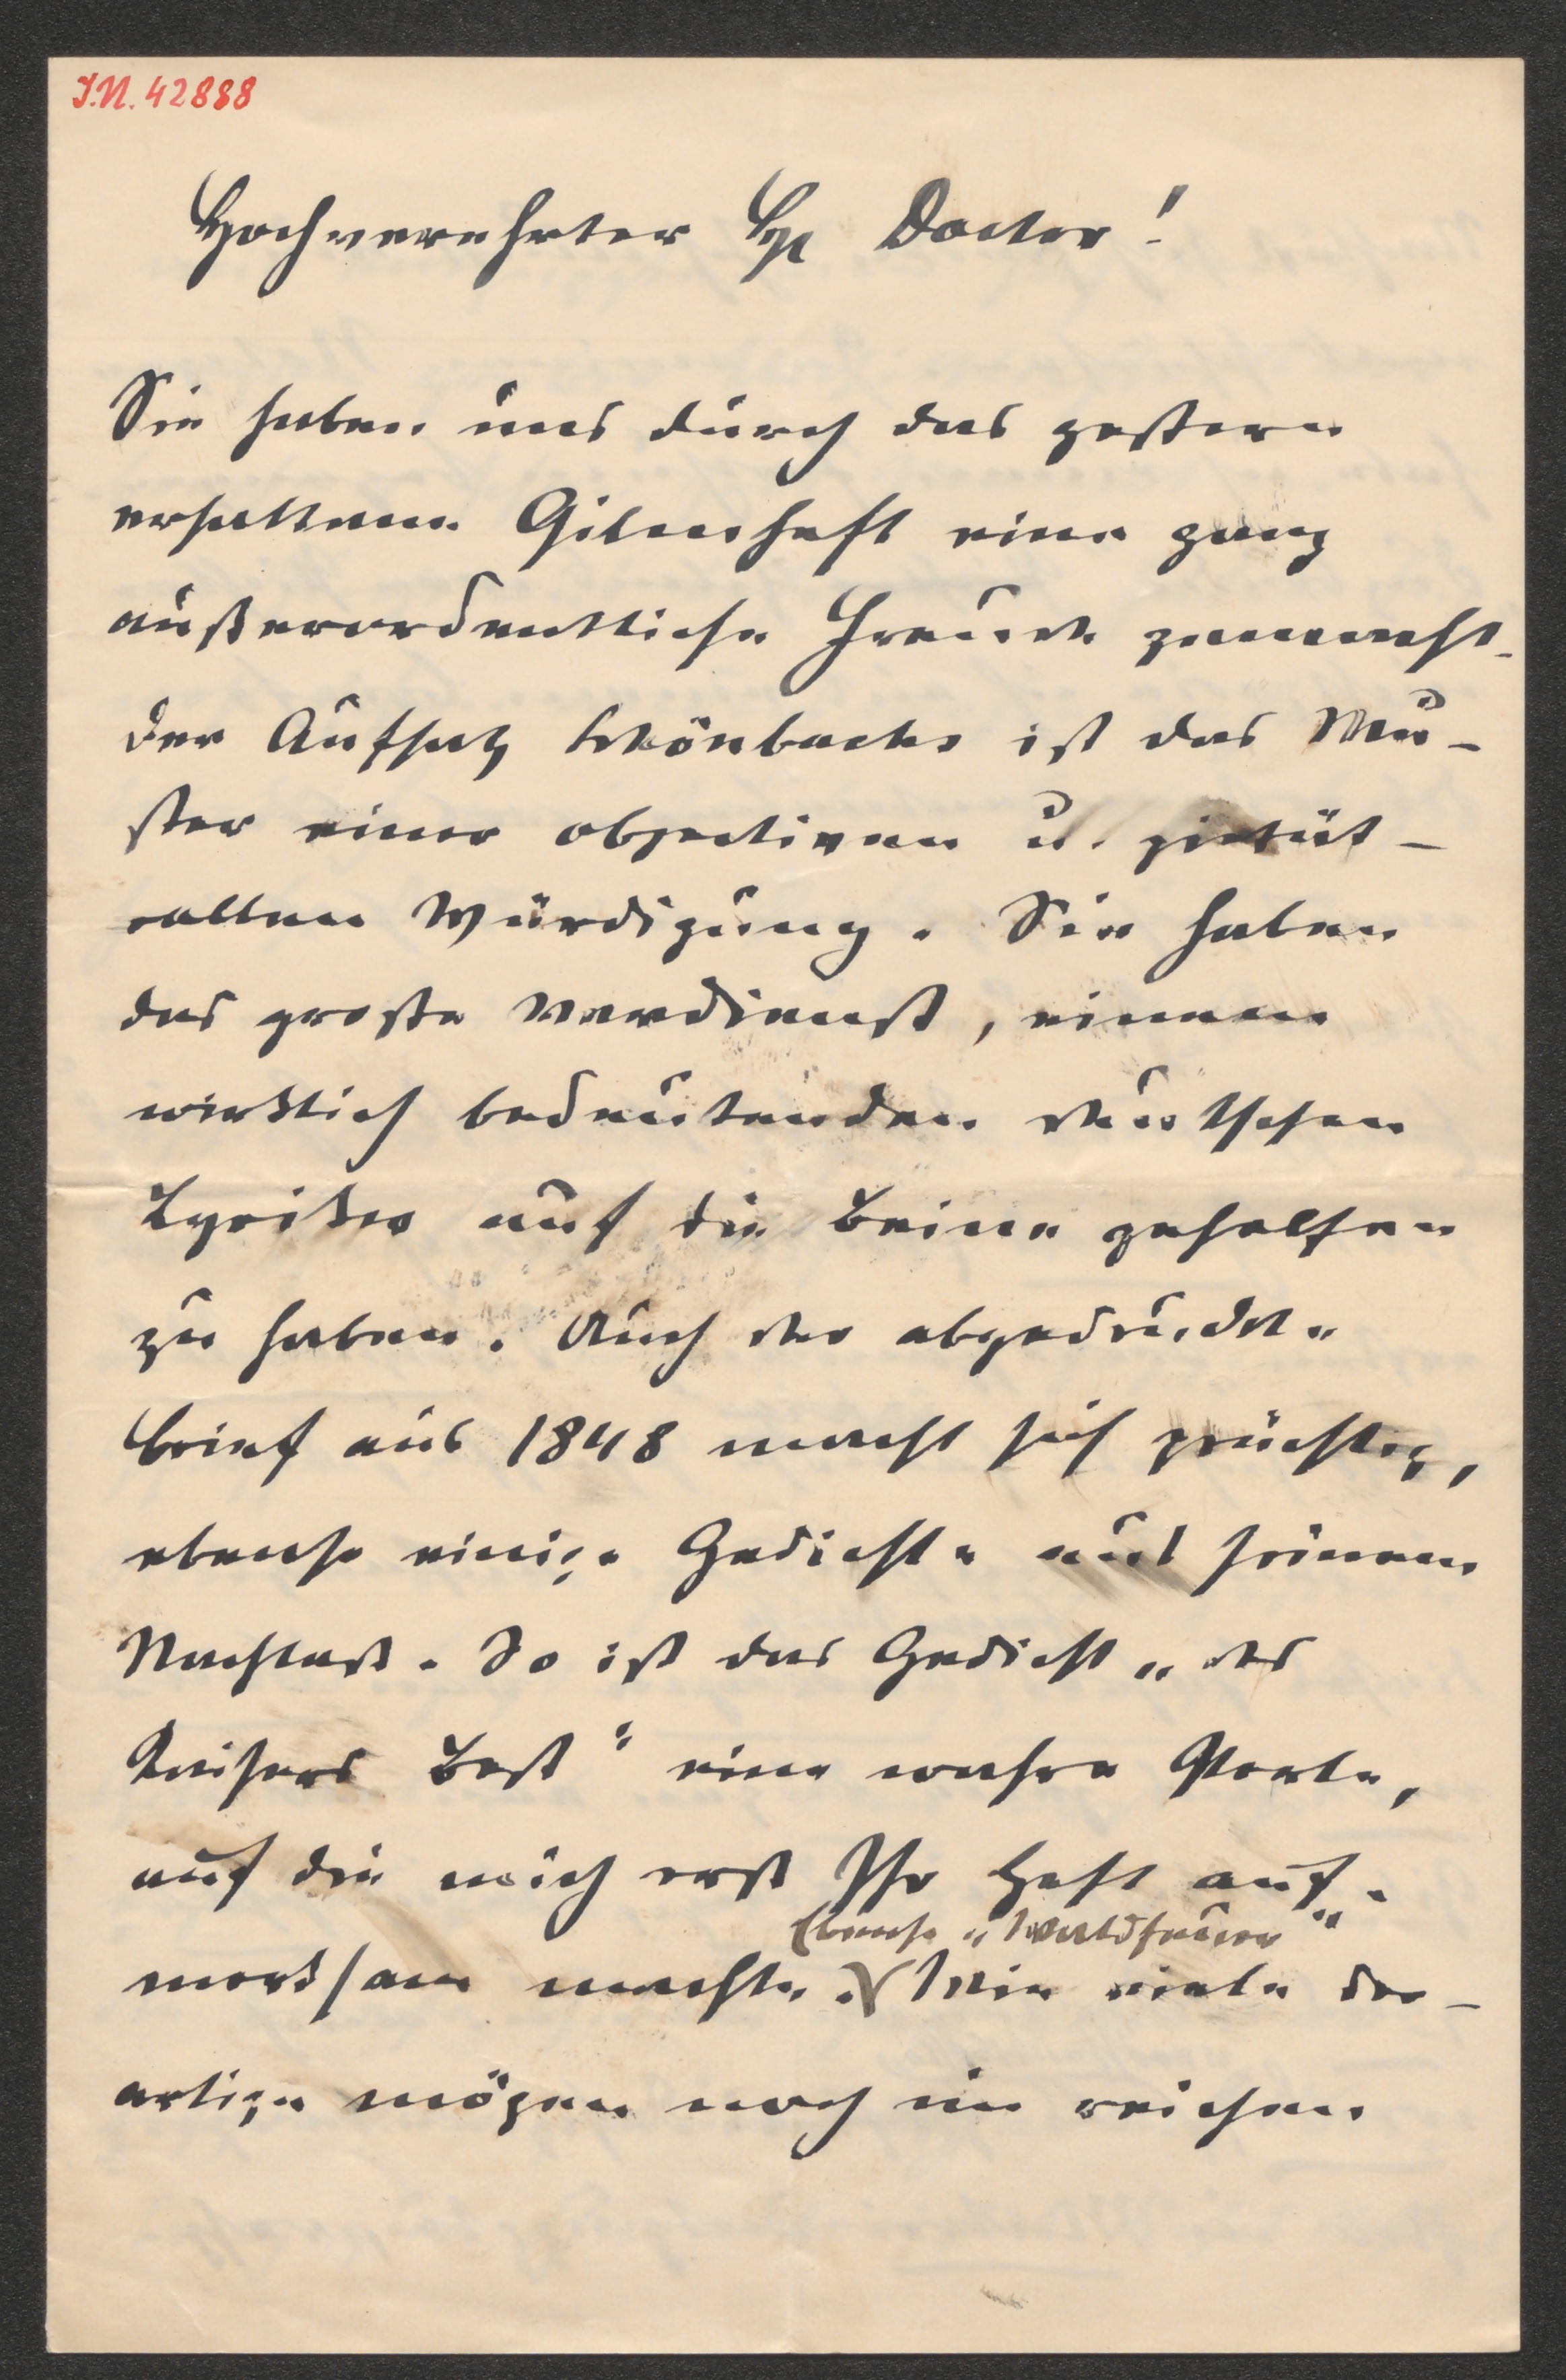 I.N. 42888
Hochverehrter Hr Doctor!
Sie haben uns durch das gestern
erhaltene Gilmheft eine ganz
außerordentliche Freude gemacht.
Der Aufsatz Schönbachs ist das Mu-
ster einer objectiven u. pietät-
vollen Würdigung. Sie haben
das große Verdienst, einem
wirklich bedeutenden deutschen
Lyriker auf die Beine geholfen
zu haben. Auch der abgedruckte
Brief aus 1848 macht sich prächtig,
ebenso einige Gedichte aus seinem
Nachlaß. So ist das Gedicht „des
Kaisers Bart“ eine wahre Perle,
auf die mich erst Ihr Heft auf-
Ebenso „Waldfeuer“
merksam machte. Wie viele der-
artige mögen noch im reichen